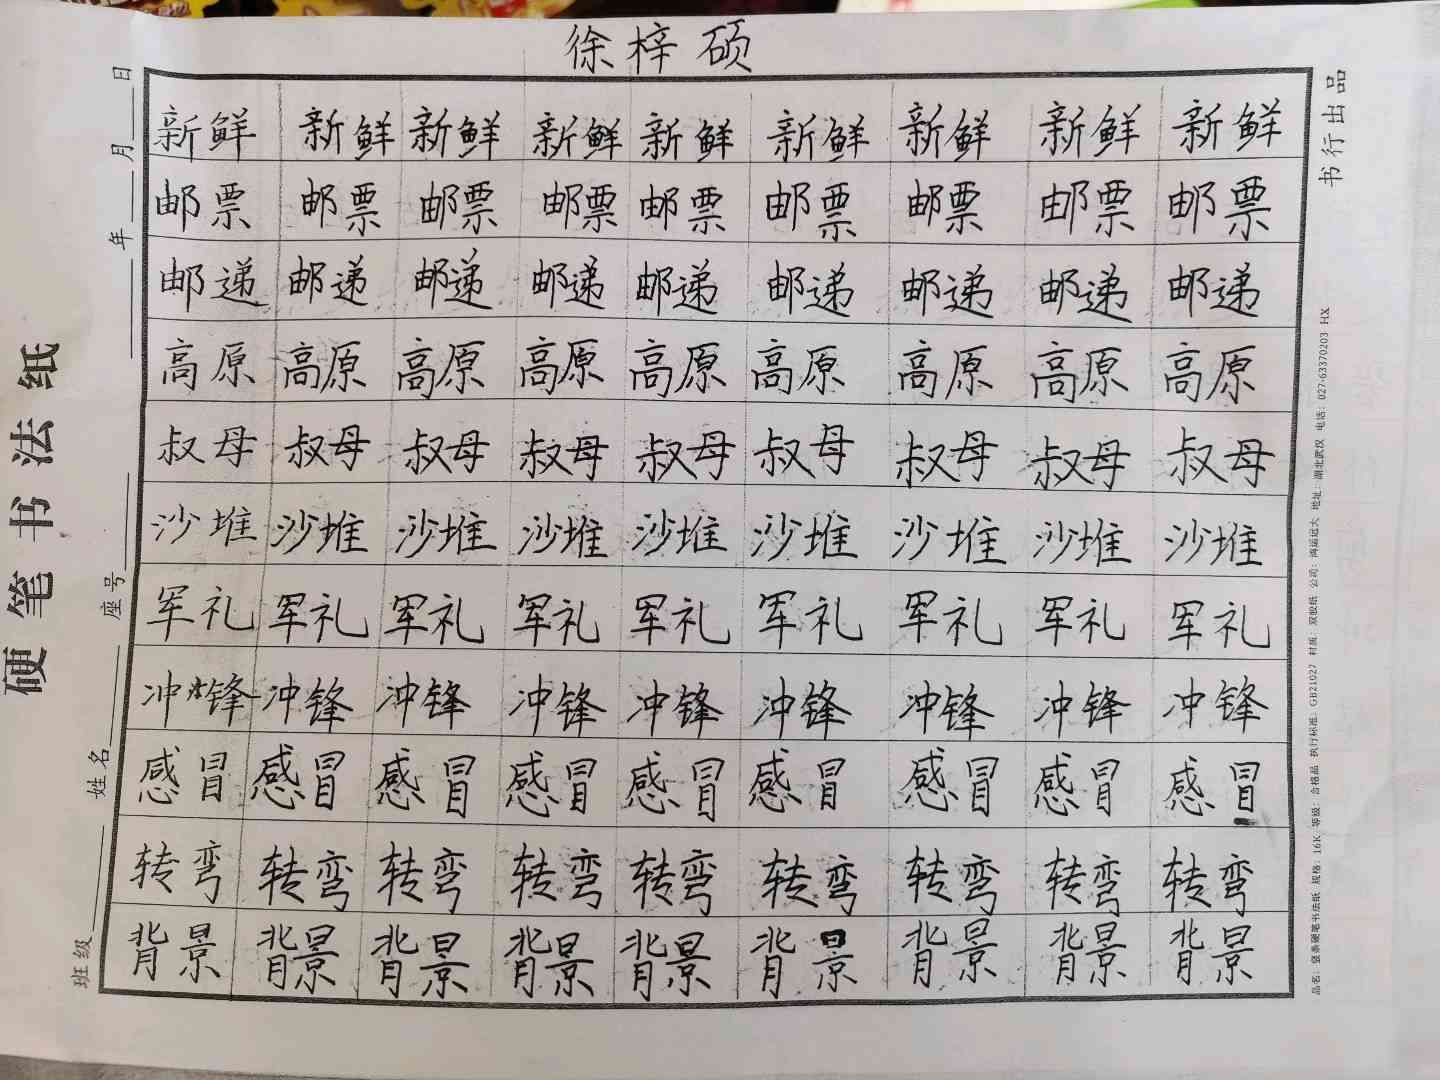 徐梓硕
新鲜 新鲜 新鲜 新鲜 新鲜 新鲜 新鲜 新鲜 新鲜
邮票 邮票 邮票 邮票 邮票 邮票 邮票 邮票 邮票
邮递 邮递 邮递 邮递 邮递 邮递 邮递 邮递 邮递
高原 高原 高原 高原 高原 高原 高原 高原 高原
叔母 叔母 叔母 叔母 叔母 叔母 叔母 叔母 叔母
沙堆 沙堆 沙堆 沙堆 沙堆 沙堆 沙堆 沙堆 沙堆
军礼 军礼 军礼 军礼 军礼 军礼 军礼 军礼 军礼
冲锋 冲锋 冲锋 冲锋 冲锋 冲锋 冲锋 冲锋 冲锋
感冒 感冒 感冒 感冒 感冒 感冒 感冒 感冒 感冒
转弯 转弯 转弯 转弯 转弯 转弯 转弯 转弯 转弯
背景 背景 背景 背景 背景 背景 背景 背景 背景
硬笔书法纸
班级 姓名 座号 年 月 日
品名：竖条硬笔书法纸 规格：16K 等级：合格品 执行标准：GB21027 材质：双胶纸 公司：鸿运远大 地址：湖北武汉 电话：027-63370203 HX
书行出品